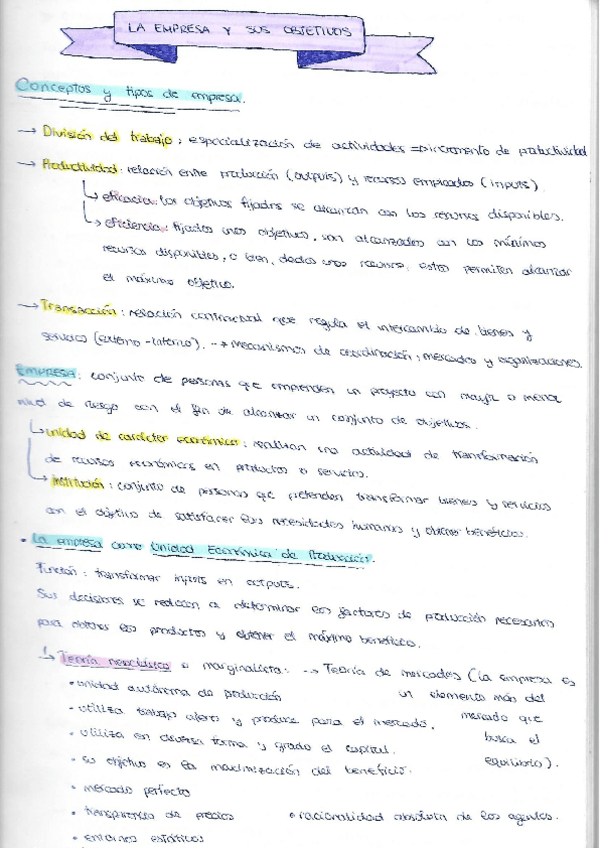 LA EMPRESA Y SUS OBJETIVOS
Conceptos y tipos de empresa.
→ División del trabajo: especialización de actividades = incremento de productividad
→ Productividad: relación entre producción (outputs) y recursos empleados (inputs).
↳ eficacia: los objetivos fijados se alcanzan con los recursos disponibles.
↳ eficiencia: fijados unos objetivos, son alcanzados con los mínimos
recursos disponibles, o bien, dados unos recursos, estos permiten alcanzar
el máximo objetivo.
→ Transacción: relación contractual que regula el intercambio de bienes y
servicios (externo-interno). → mecanismos de coordinación; mercados y organizaciones.
EMPRESA: conjunto de personas que emprenden un proyecto con mayor o menor
nivel de riesgo con el fin de alcanzar un conjunto de objetivos.
↳ unidad de carácter económico: realizan una actividad de transformación
de recursos económicos en productos o servicios.
↳ institución: conjunto de personas que pretenden transformar bienes y servicios
con el objetivo de satisfacer las necesidades humanas y obtener beneficios.
• La empresa como Unidad Económica de Producción.
Función: transformar inputs en outputs.
Sus decisiones se reducen a determinar los factores de producción necesarios
para obtener los productos y obtener el máximo beneficio.
↳ Teoría neoclásica o marginalista: → Teoría de mercados (la empresa es
• unidad autónoma de producción un elemento más del
• utiliza trabajo ajeno y produce para el mercado. mercado que
• utiliza en diversa forma y grado el capital. busca el
• su objetivo es la maximización del beneficio. equilibrio).
• mercado perfecto
• transparencia de precios • racionalidad absoluta de los agentes.
• entornos estáticos